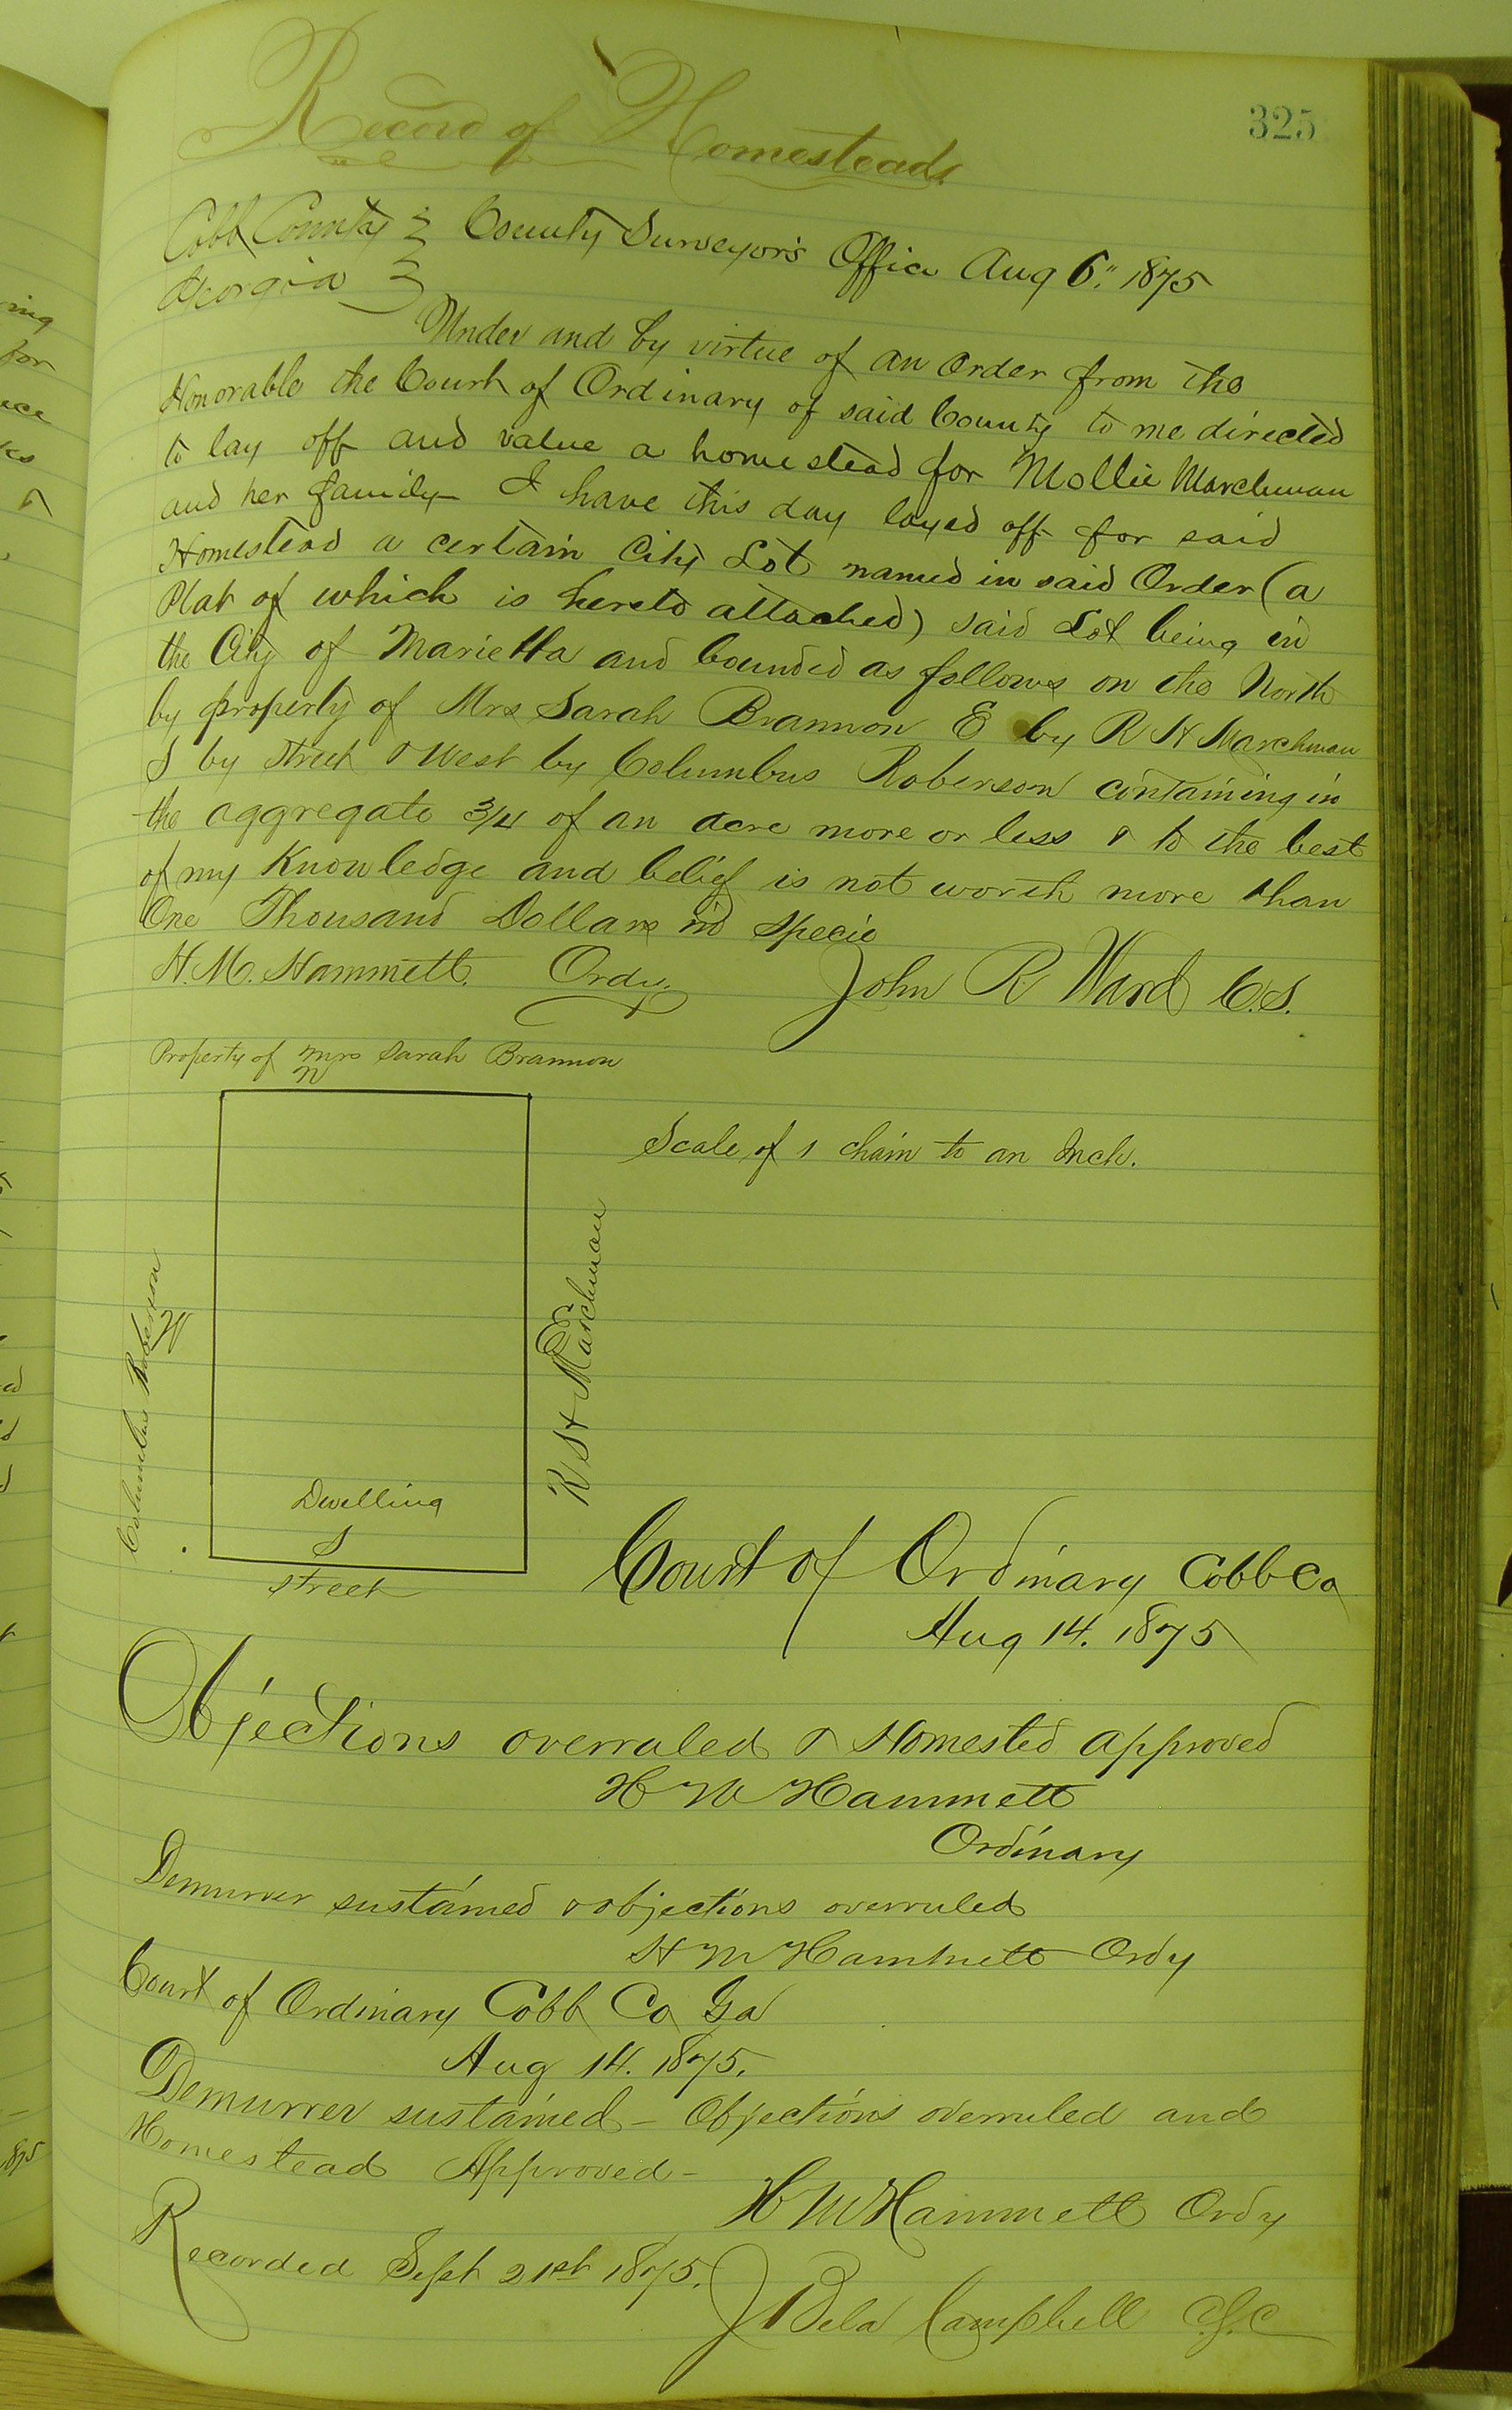 325
Record of Homesteads
Cobb County } County Surveyor's Office Aug 6" 1875
Georgia }
Under and by virtue of an order from the
Honorable the Court of Ordinary of said County to me directed
to lay off and value a homestead for Mollie Marchman
and her family I have this day layed off for said
Homestead a certain City Lot named in said Order (a
Plat of which is hereto attached) said Lot being in
the City of Marietta and bounded as follows on the North
by property of Mrs Sarah Brannon E by R H Marchman
S by street & West by Columbus Roberson containing in
the aggregate 3/4 of an acre more or less & to the best
of my Knowledge and belief is not worth more than
One Thousand Dollars in specie
H. M. Hammett. Ordy. John R Ward C.S.
Property of Mrs Sarah Brannon
N
Scale of 1 chain to an Inch.
Columbus Roberson
W
E
R H Marchman
Dwelling
S
street
Court of Ordinary Cobb Co
Aug 14. 1875
Objections overruled & Homested approved
H M Hammett
Ordinary
Demurrer sustained & objections overruled
H M Hammett Ordy
Court of Ordinary Cobb Co Ga
Aug 14. 1875.
Demurrer sustained - Objections overruled and
Homestead Approved -
H M Hammett Ordy
Recorded Sept 21st 1875.
J Bela Campbell C.S.C